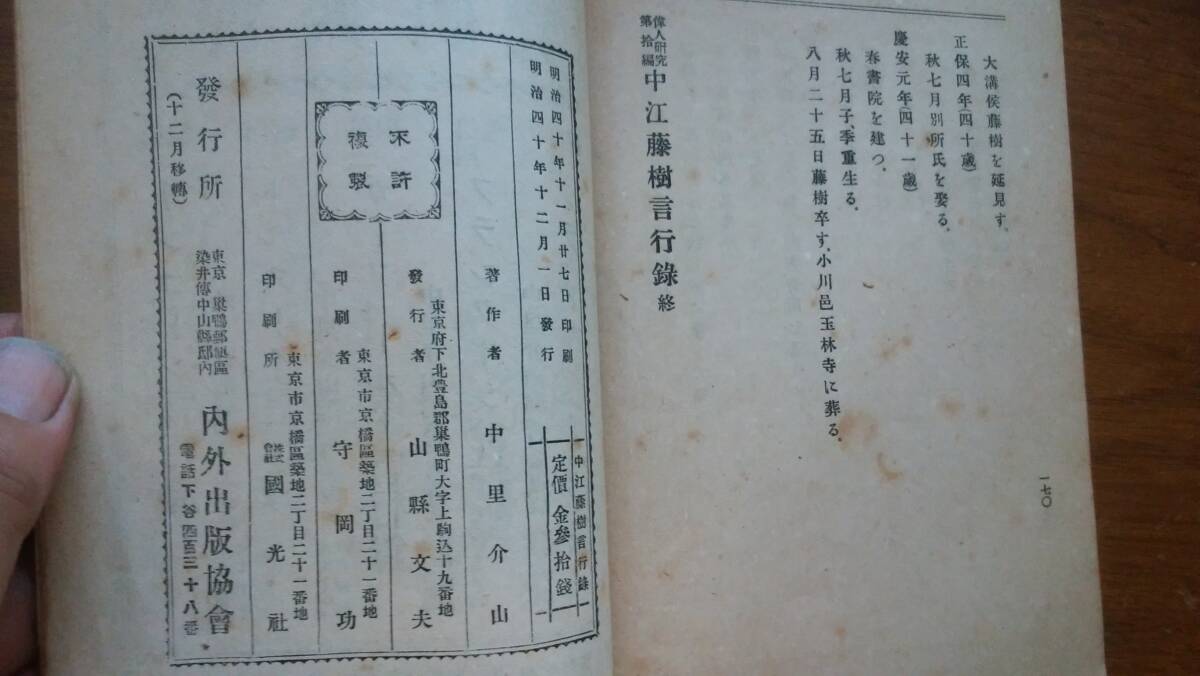 大溝侯藤樹を延見す。
正保四年(四十歳)
秋七月別所氏を娶る。
慶安元年(四十一歳)
春書院を建つ。
秋七月子季重生る。
八月二十五日藤樹卒す、小川邑玉林寺に葬る。
偉人研究
第拾編
中江藤樹言行錄 終
一七〇
明治四十年十一月廿七日印刷
明治四十年十二月一日發行
中江藤樹言行錄
定價金參拾錢
不許
複製
著作者 中里介山
東京府下北豊島郡巢鴨町大字上駒込十九番地
發行者 山縣文夫
東京市京橋區築地二丁目二十一番地
印刷者 守岡功
東京市京橋區築地二丁目二十一番地
印刷所 株式會社 國光社
發行所
(十二月移轉)
東京 巢鴨郵便區
染井傳中山縣邸內
內外出版協會
電話下谷四百三十八番